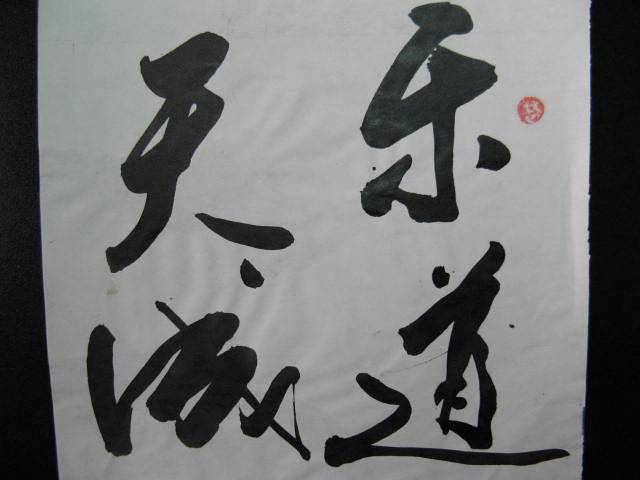 乐道
天成